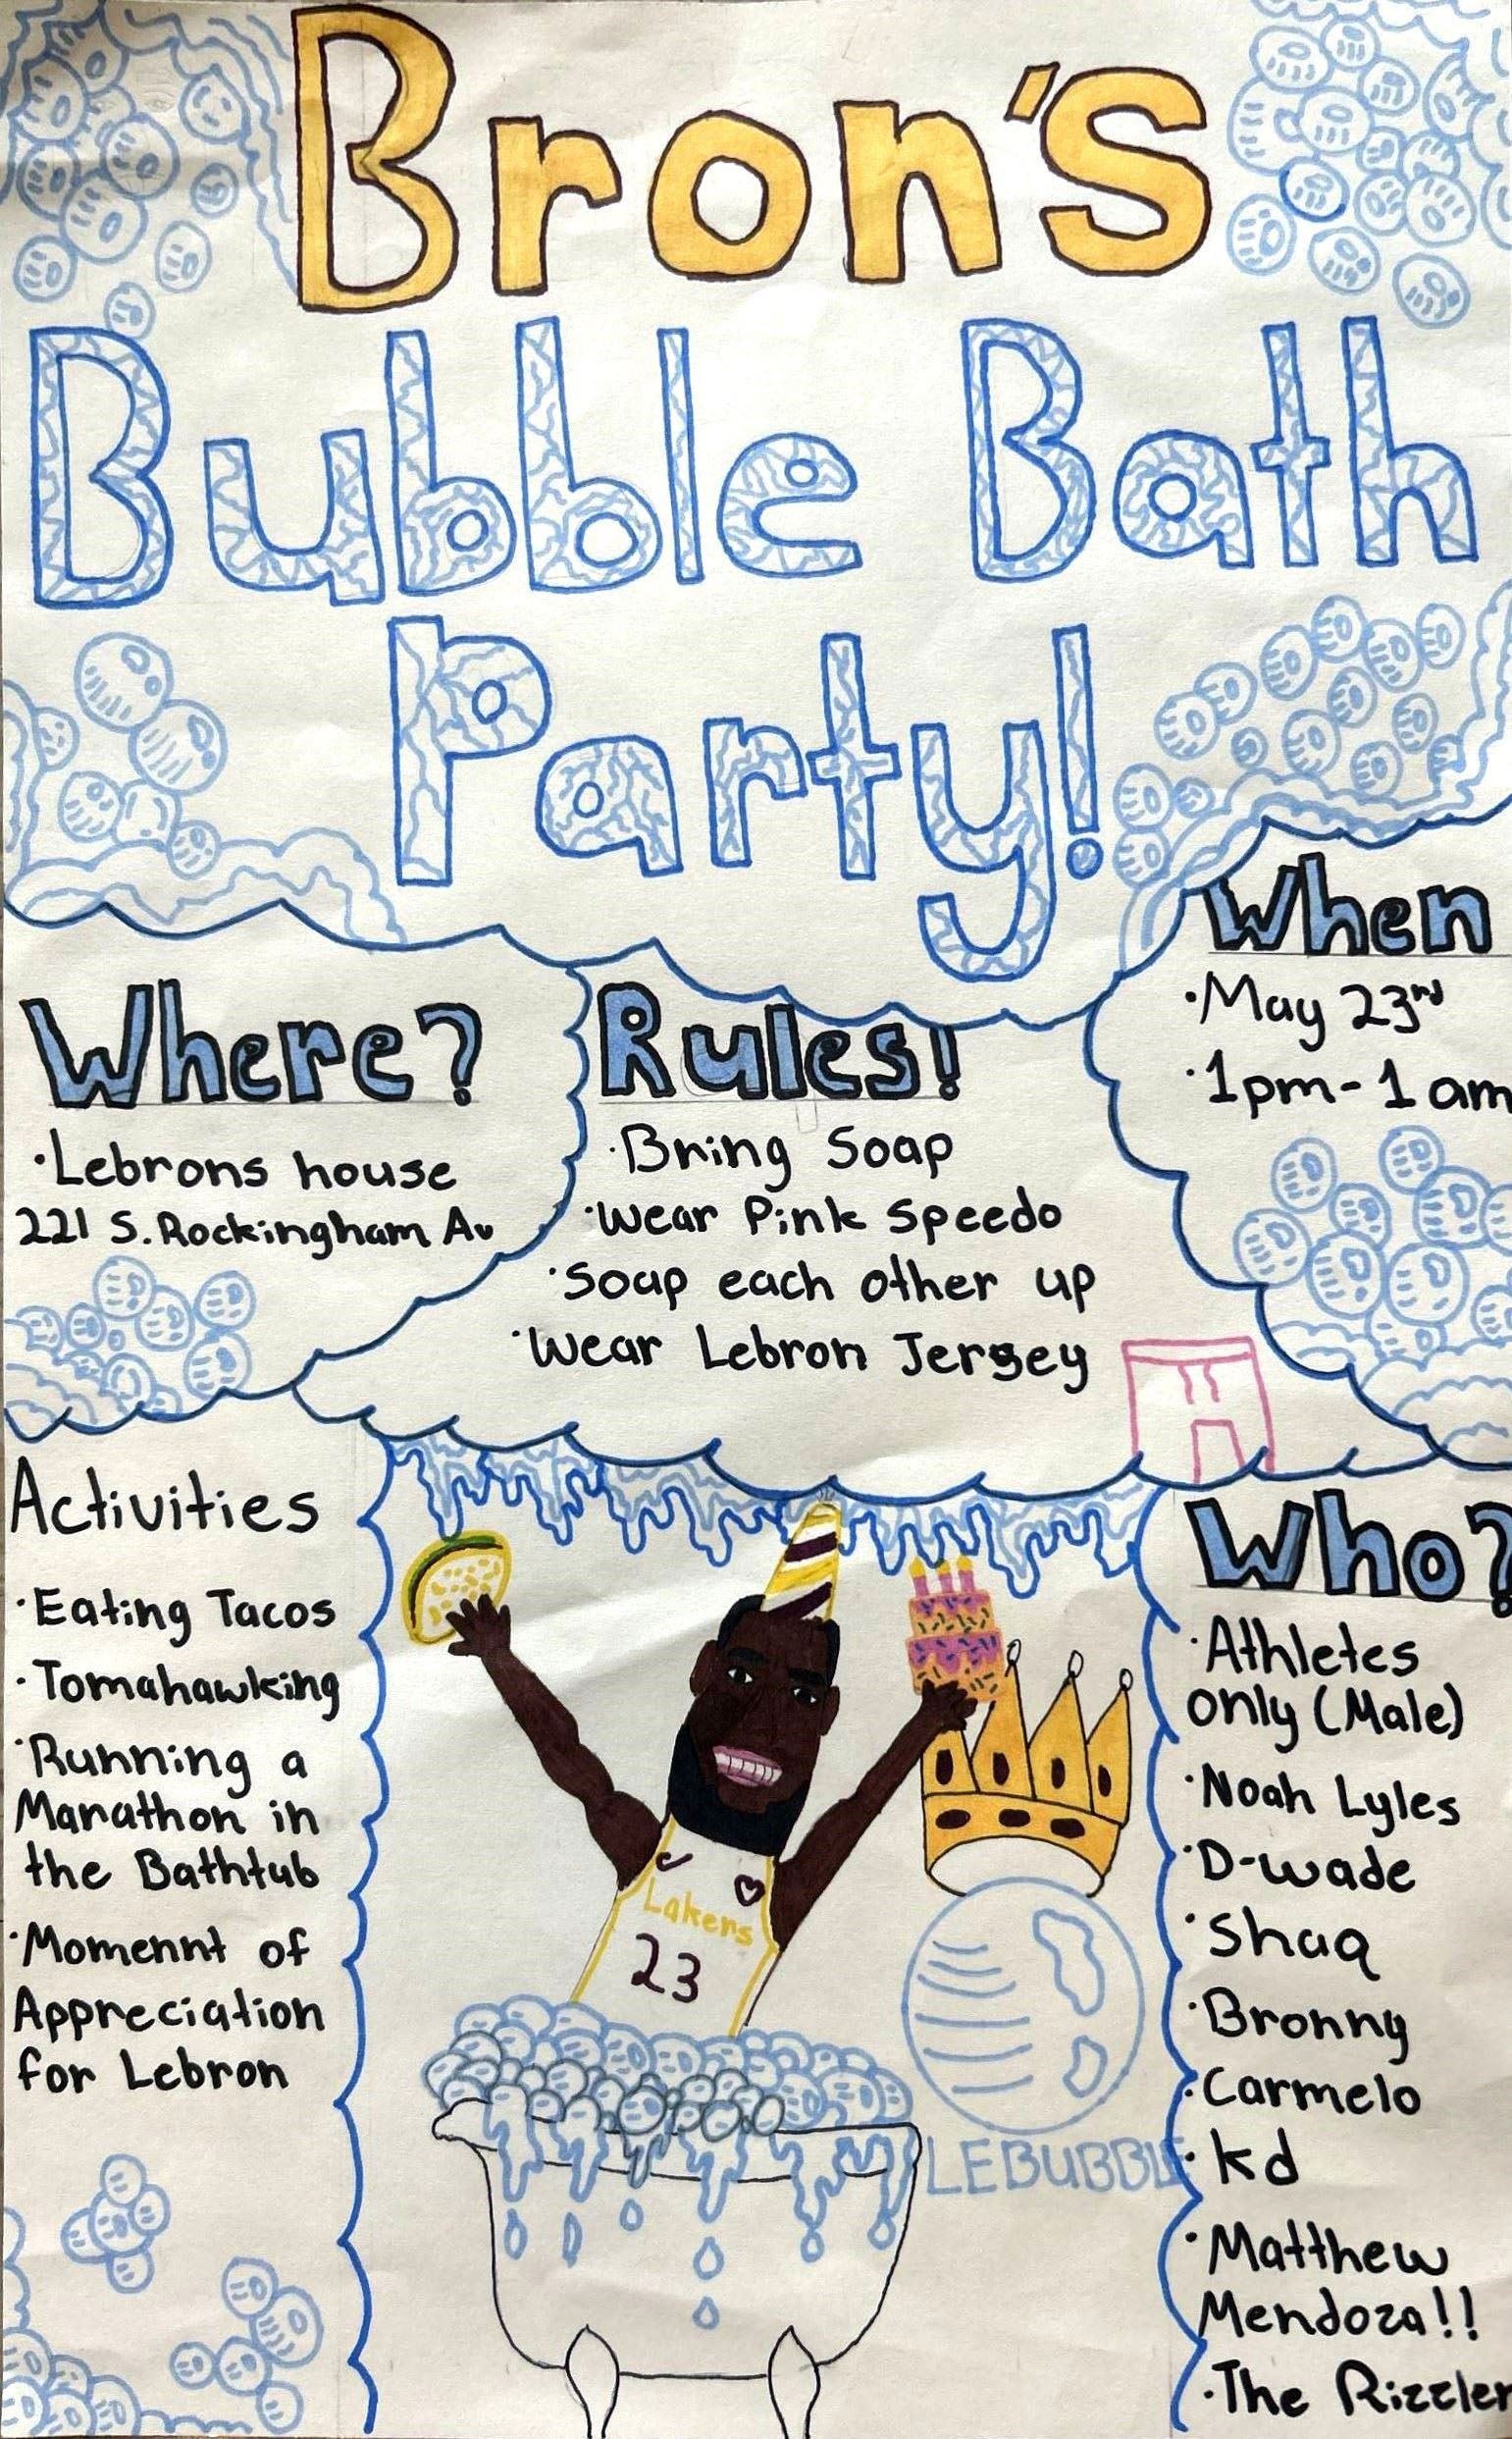 Bron's
Bubble Bath
Party!
Where?
·Lebrons house
221 S. Rockingham Av
Rules!
·Bring Soap
·Wear Pink Speedo
·Soap each other up
·Wear Lebron Jersey
When
·May 23rd
·1pm-1am
Activities
·Eating Tacos
·Tomahawking
·Running a
Marathon in
the Bathtub
·Momennt of
Appreciation
for Lebron
Lakers
23
LEBUBBLE
Who?
·Athletes
only (Male)
·Noah Lyles
·D-wade
·Shaq
·Bronny
·Carmelo
·Kd
·Matthew
Mendoza!!
·The Rizzler